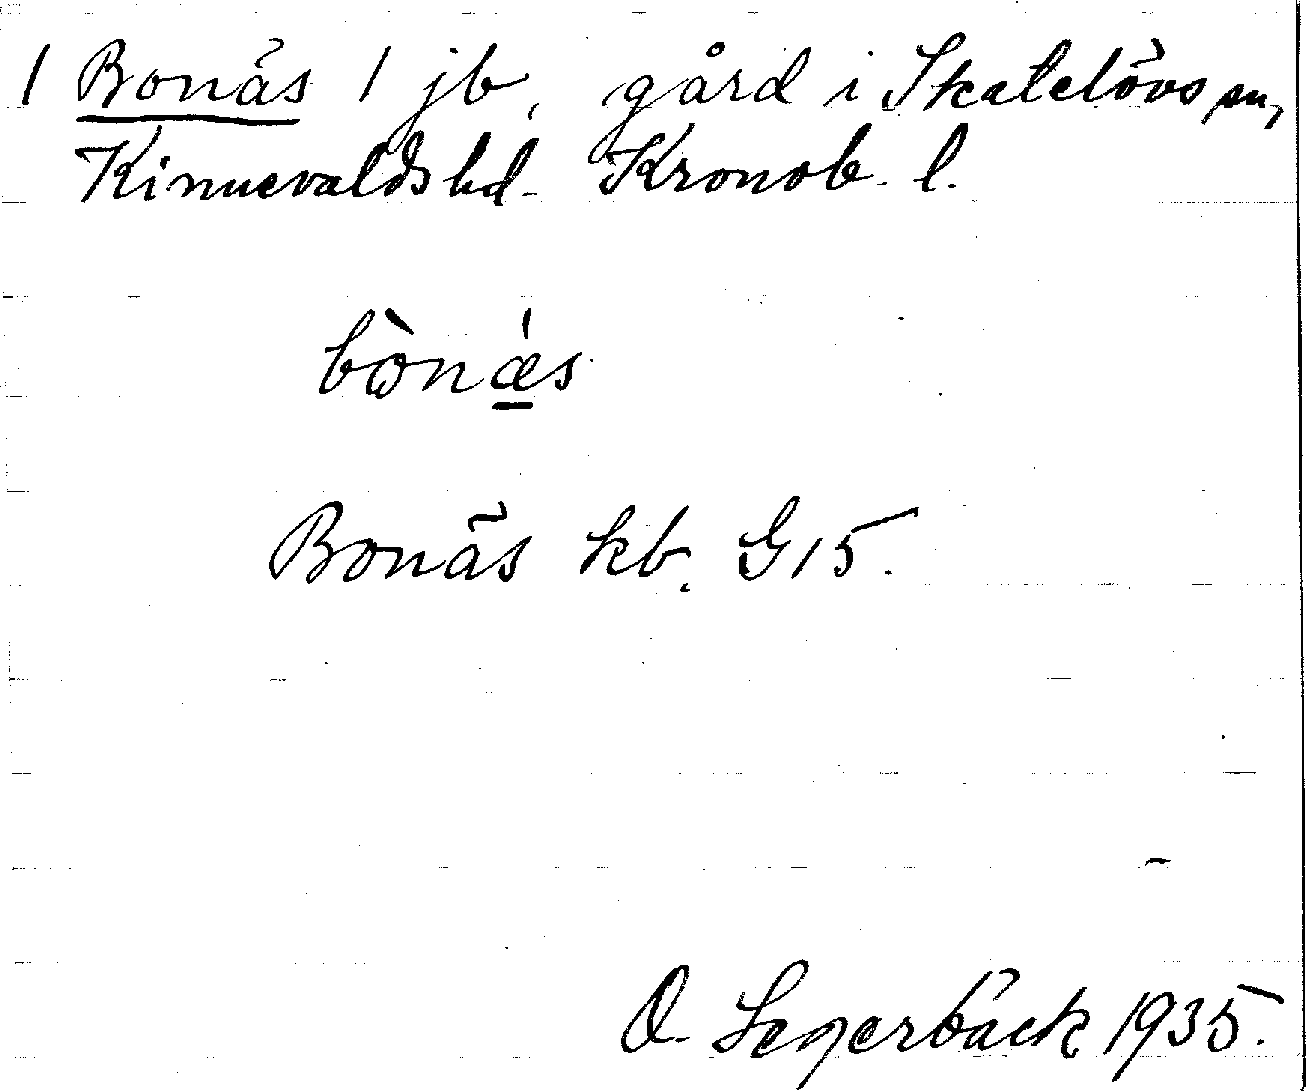 / Bonäs / jb, gård i Skatelövs sn,
Kinnevalds hd. Kronob. l.
bònǽs
Bonäs kb. G15.
O. Segerbäck 1935.